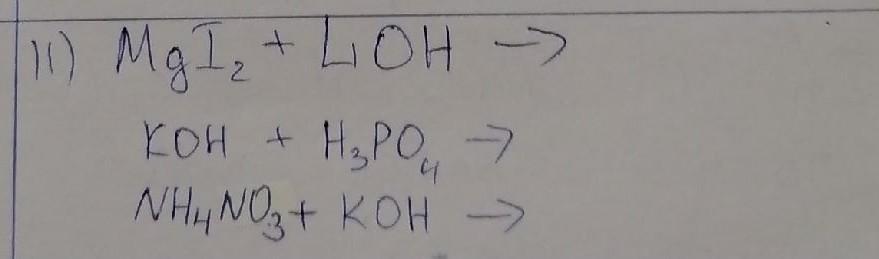 11) MgI₂ + LiOH →
KOH + H₃PO₄ →
NH₄NO₃ + KOH →